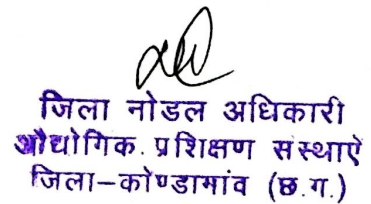 जिला नोडल अधिकारी
औद्योगिक. प्रशिक्षण संस्थाऐं
जिला–कोण्डामांव (छ.ग.)